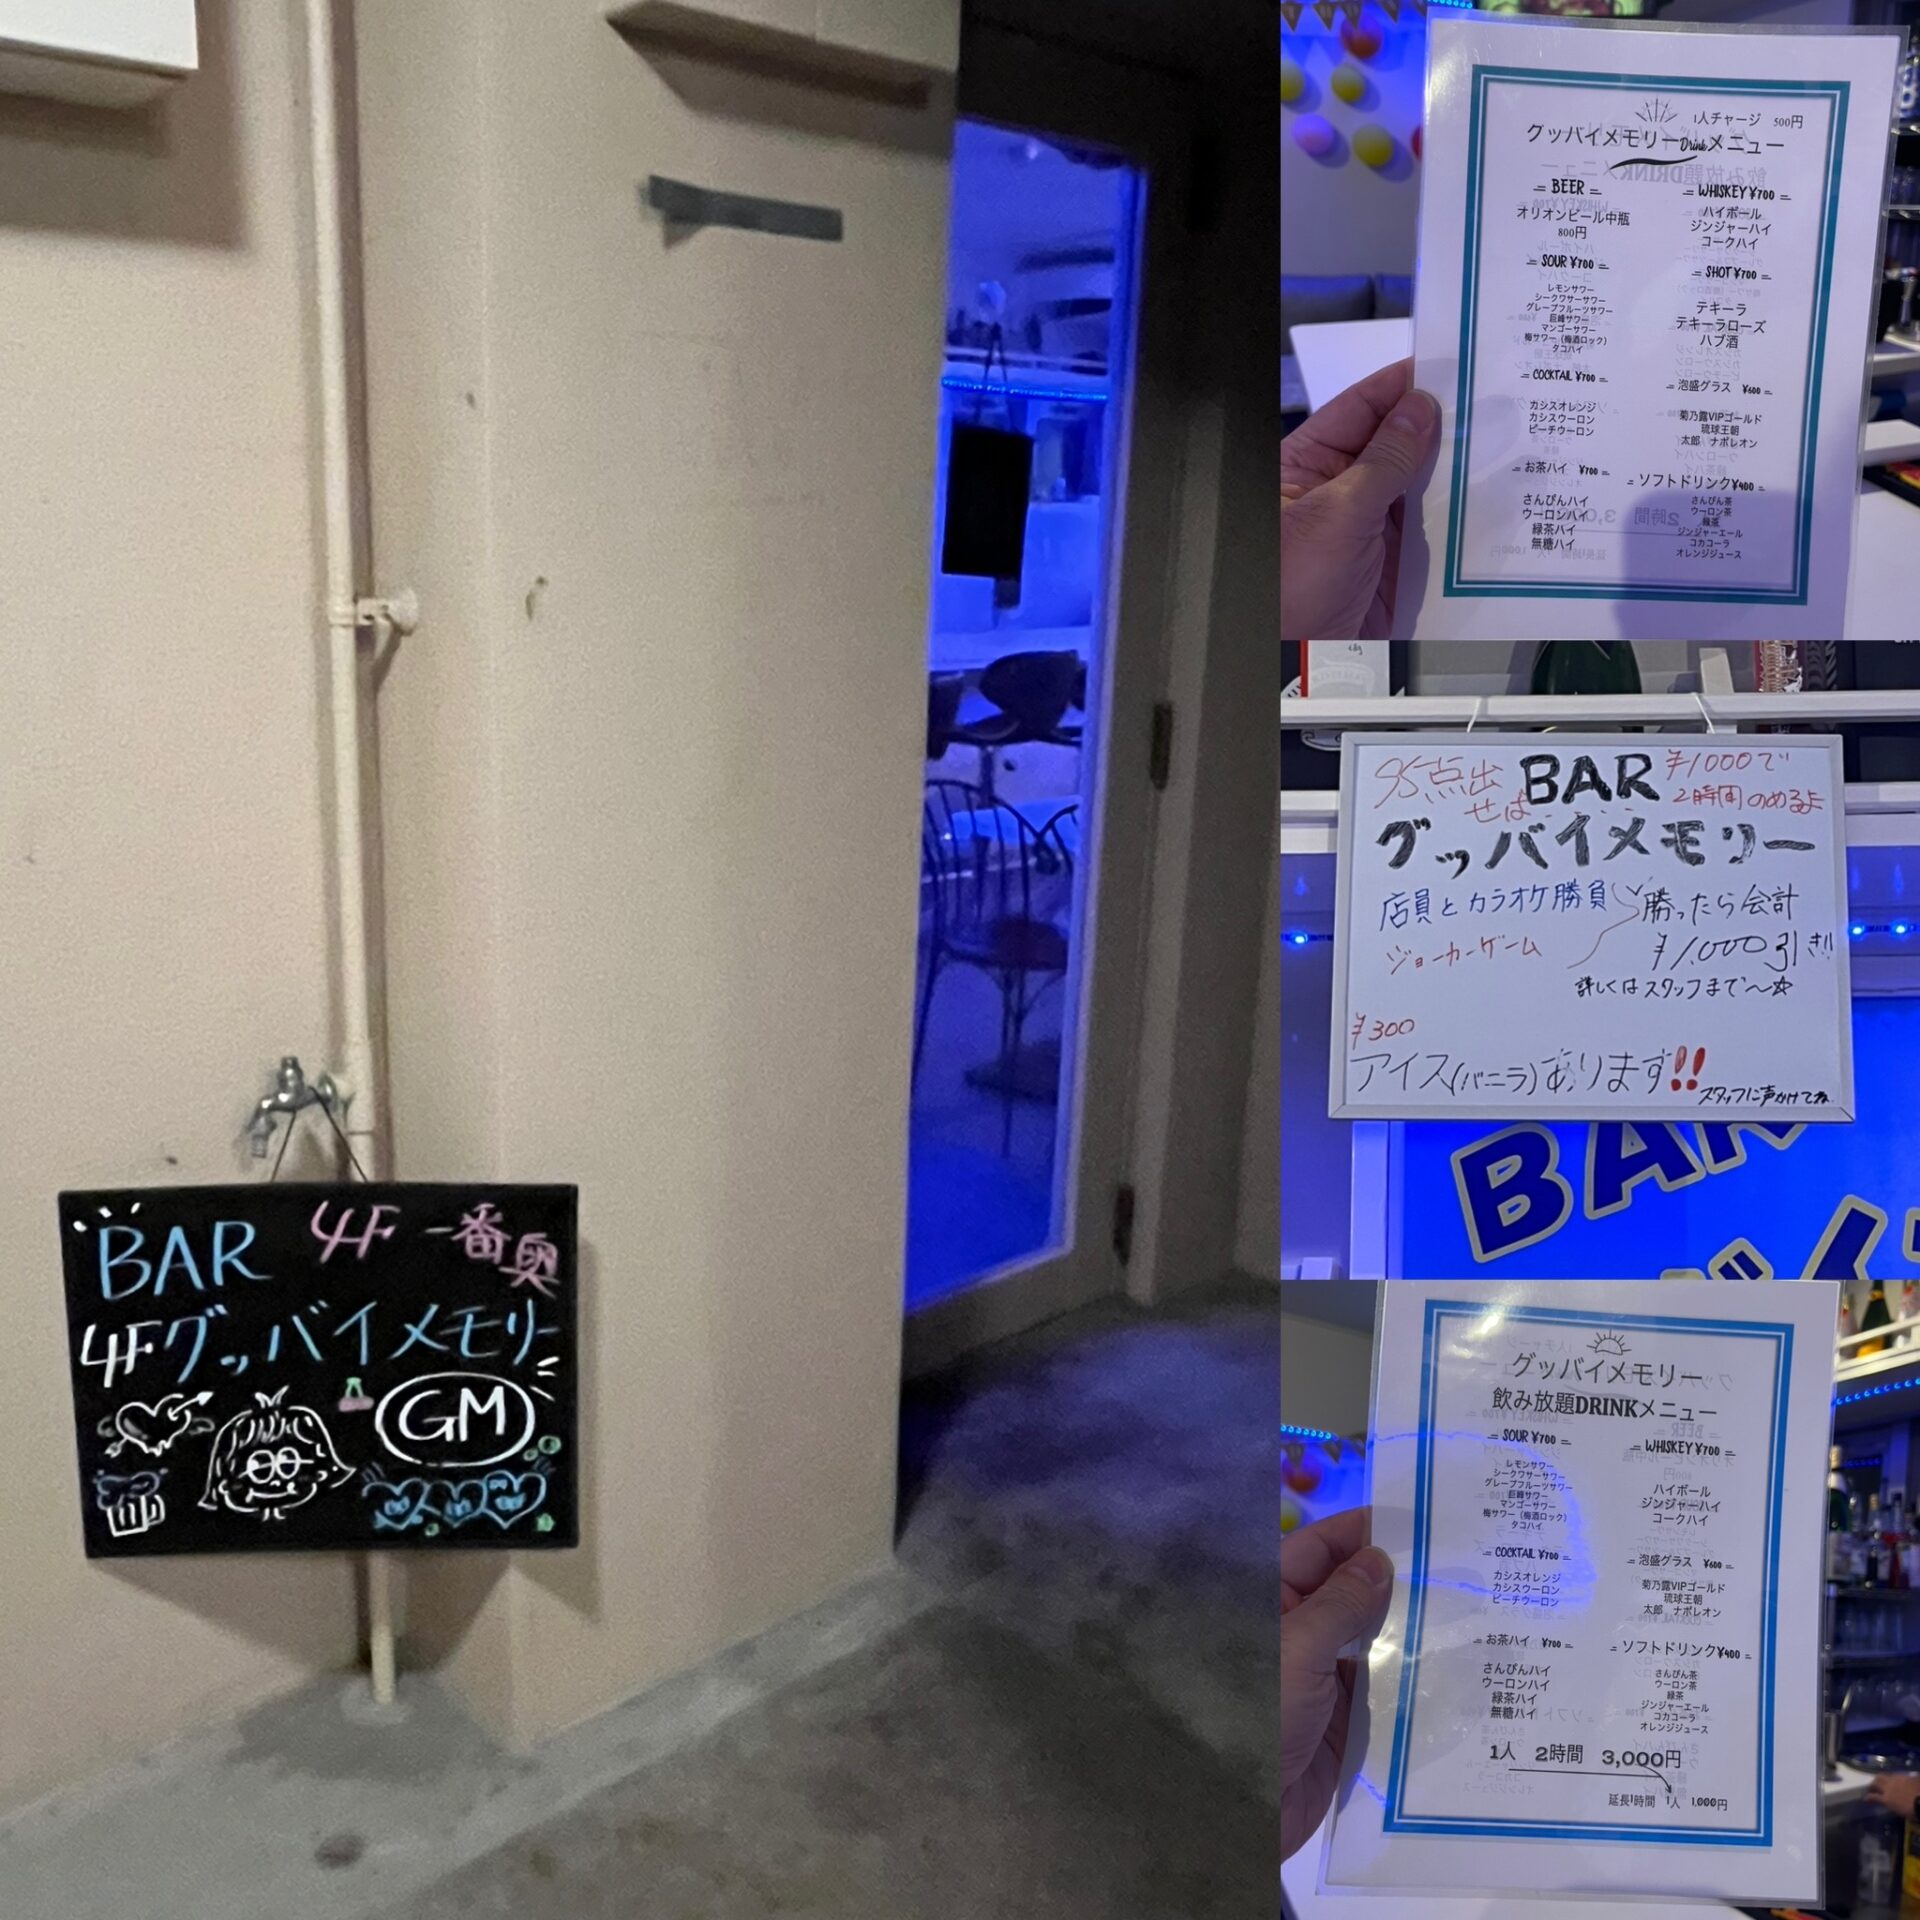 BAR 4F 一番奥
4Fグッバイメモリー
GM
1人チャージ 500円
グッバイメモリーDrinkメニュー
BEER
オリオンビール中瓶
800円
SOUR ¥700
レモンサワー
シークワサーサワー
グレープフルーツサワー
巨峰サワー
マンゴーサワー
梅サワー（梅酒ロック）
タコハイ
COCKTAIL ¥700
カシスオレンジ
カシスウーロン
ピーチウーロン
お茶ハイ ¥700
さんぴんハイ
ウーロンハイ
緑茶ハイ
無糖ハイ
WHISKEY ¥700
ハイボール
ジンジャーハイ
コークハイ
SHOT ¥700
テキーラ
テキーラローズ
ハブ酒
泡盛グラス ¥600
菊乃露VIPゴールド
琉球王朝
太郎 ナポレオン
ソフトドリンク¥400
さんぴん茶
ウーロン茶
緑茶
ジンジャーエール
コカコーラ
オレンジジュース
95点出せば
BAR
¥1000で
2時間のめるよ
グッバイメモリー
店員とカラオケ勝負
ジョーカーゲーム
勝ったら会計
¥1,000引き!!
詳しくはスタッフまで〜☆
¥300
アイス(バニラ)あります!!
スタッフに声かけてね
BAR
グッバイメモリー
飲み放題DRINKメニュー
SOUR ¥700
レモンサワー
シークワサーサワー
グレープフルーツサワー
巨峰サワー
マンゴーサワー
梅サワー（梅酒ロック）
タコハイ
COCKTAIL ¥700
カシスオレンジ
カシスウーロン
ピーチウーロン
お茶ハイ ¥700
さんぴんハイ
ウーロンハイ
緑茶ハイ
無糖ハイ
WHISKEY ¥700
ハイボール
ジンジャーハイ
コークハイ
泡盛グラス ¥600
菊乃露VIPゴールド
琉球王朝
太郎 ナポレオン
ソフトドリンク¥400
さんぴん茶
ウーロン茶
緑茶
ジンジャーエール
コカコーラ
オレンジジュース
1人 2時間 3,000円
延長1時間 1人 1,000円